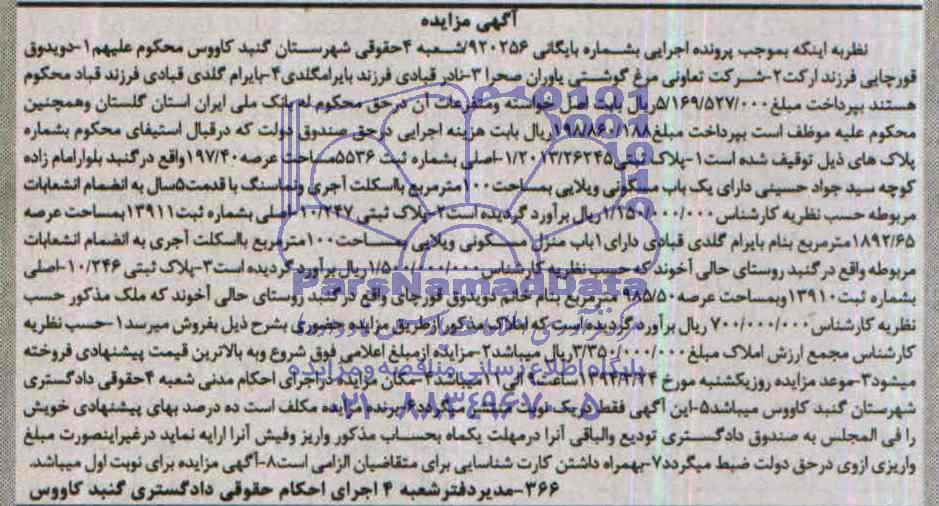 آگهی مزایده
نظربه اینکه بموجب پرونده اجرایی بشماره بایگانی ۹۲۰۲۵۶/شعبه ۴حقوقی شهرستان گنبد کاووس محکوم علیهم۱-دویدوق
قورچایی فرزند ارکت۲-شرکت تعاونی مرغ گوشتی یاوران صحرا ۳-نادر قبادی فرزند بایرامگلدی۴-بایرام گلدی قبادی فرزند قباد محکوم
هستند بپرداخت مبلغ۵/۱۶۹/۵۲۷/۰۰۰ریال بابت اصل خواسته ومتفرعات آن درحق محکوم له بانک ملی ایران استان گلستان وهمچنین
محکوم علیه موظف است بپرداخت مبلغ۱۹۸/۸۶۰/۱۸۸ریال بابت هزینه اجرایی درحق صندوق دولت که درقبال استیفای محکوم بشماره
پلاک های ذیل توقیف شده است۱-پلاک ثبتی۱/۲۰۱۳/۲۶۲۴۵-اصلی بشماره ثبت ۵۵۳۶مساحت عرصه۱۹۷/۴۰واقع درگنبد بلوارامام زاده
کوچه سید جواد حسینی دارای یک باب مسکونی ویلایی بمساحت۱۰۰مترمربع بااسکلت آجری ونماسنگ باقدمت۵سال به انضمام انشعابات
مربوطه حسب نظریه کارشناس۱/۱۵۰/۰۰۰/۰۰۰ریال برآورد گردیده است۲-پلاک ثبتی ۱۰/۲۴۷-اصلی بشماره ثبت۱۳۹۱۱بمساحت عرصه
۱۸۹۲/۶۵مترمربع بنام بایرام گلدی قبادی دارای۱باب منزل مسکونی ویلایی بمساحت۱۰۰مترمربع بااسکلت آجری به انضمام انشعابات
مربوطه واقع در گنبد روستای حالی آخوند که حسب نظریه کارشناس ۱/۵۰۰/۰۰۰/۰۰۰ریال برآورد گردیده است۳-پلاک ثبتی ۱۰/۲۴۶-اصلی
بشماره ثبت۱۳۹۱۰وبمساحت عرصه ۹۸۵/۵۰مترمربع بنام خانم دویدوق قورچای واقع درگنبد روستای حالی آخوند که ملک مذکور حسب
نظریه کارشناس۷۰۰/۰۰۰/۰۰۰ ریال برآورد گردیده است که املاک مذکور ازطریق مزایده حضوری بشرح ذیل بفروش میرسد۱-حسب نظریه
کارشناس مجمع ارزش املاک مبلغ ۳/۳۵۰/۰۰۰/۰۰۰ریال میباشد۲-مزایده ازمبلغ اعلامی فوق شروع وبه بالاترین قیمت پیشنهادی فروخته
میشود۳-موعد مزایده روزیکشنبه مورخ ۱۳۹۴/۳/۲۴ساعت۹ الی۱۱میباشد۴-مکان مزایده دراجرای احکام مدنی شعبه ۴حقوقی دادگستری
شهرستان گنبد کاووس میباشد۵-این آگهی فقط دریک نوبت منتشر میگردد۶-برنده مزایده مکلف است ده درصد بهای پیشنهادی خویش
را فی المجلس به صندوق دادگستری تودیع والباقی آنرا درمهلت یکماه بحساب مذکور واریز وفیش آنرا ارایه نماید درغیراینصورت مبلغ
واریزی ازوی درحق دولت ضبط میگردد۷-بهمراه داشتن کارت شناسایی برای متقاضیان الزامی است۸-آگهی مزایده برای نوبت اول میباشد.
۳۶۶-مدیردفترشعبه ۴ اجرای احکام حقوقی دادگستری گنبد کاووس
ParsNamadData
پایگاه اطلاع رسانی مناقصه و مزایده
۰۲۱-۸۸۳۴۹۶۷۰-۵